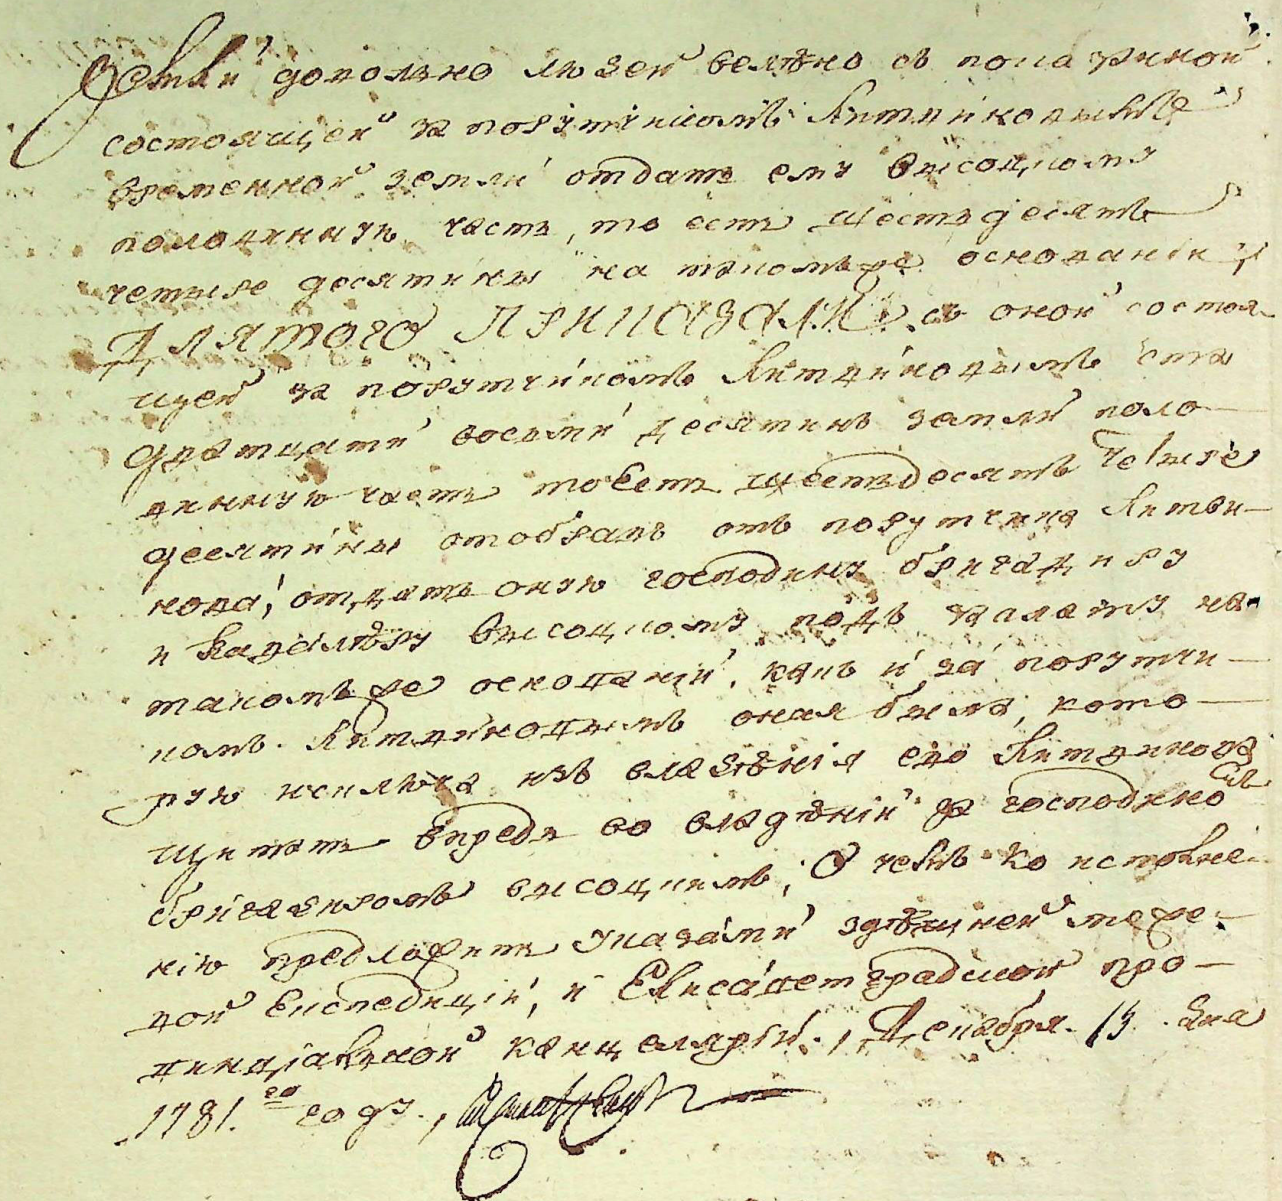 довольно людей велѣно съ показанной
состоящей за порутчикомъ Литвиновымъ
временной земли отдать ему Высоцкому
половинную часть, то есть шестьдесятъ
четыре десятины на такомъ же основаніи
ДЛЯ ТОГО ПРИКАЗАЛИ съ оной состоя-
щей за порутчикомъ Литвиновымъ ста
дватцати восьми десятинъ земли поло-
винную часть то есть шестьдесятъ четыре
десятины отобравъ отъ порутчика Литви-
нова, отдать оную господину бригадиру
и кавалеру Высоцкому подъ на
такомъ же основаніи, какъ и за порутчи-
комъ Литвиновымъ оная была, кото-
рую исключа изъ владѣнія ево Литвинова
щитать впредь во владѣніи за господиномъ
бригадиромъ Высоцкимъ, О чемъ ко исполне-
нію предложить указами здѣшней меже-
вой Експедиціи, и Елисаветградской про-
винціальной канцеляріи., Декабря 13 дня
1781.го году.,